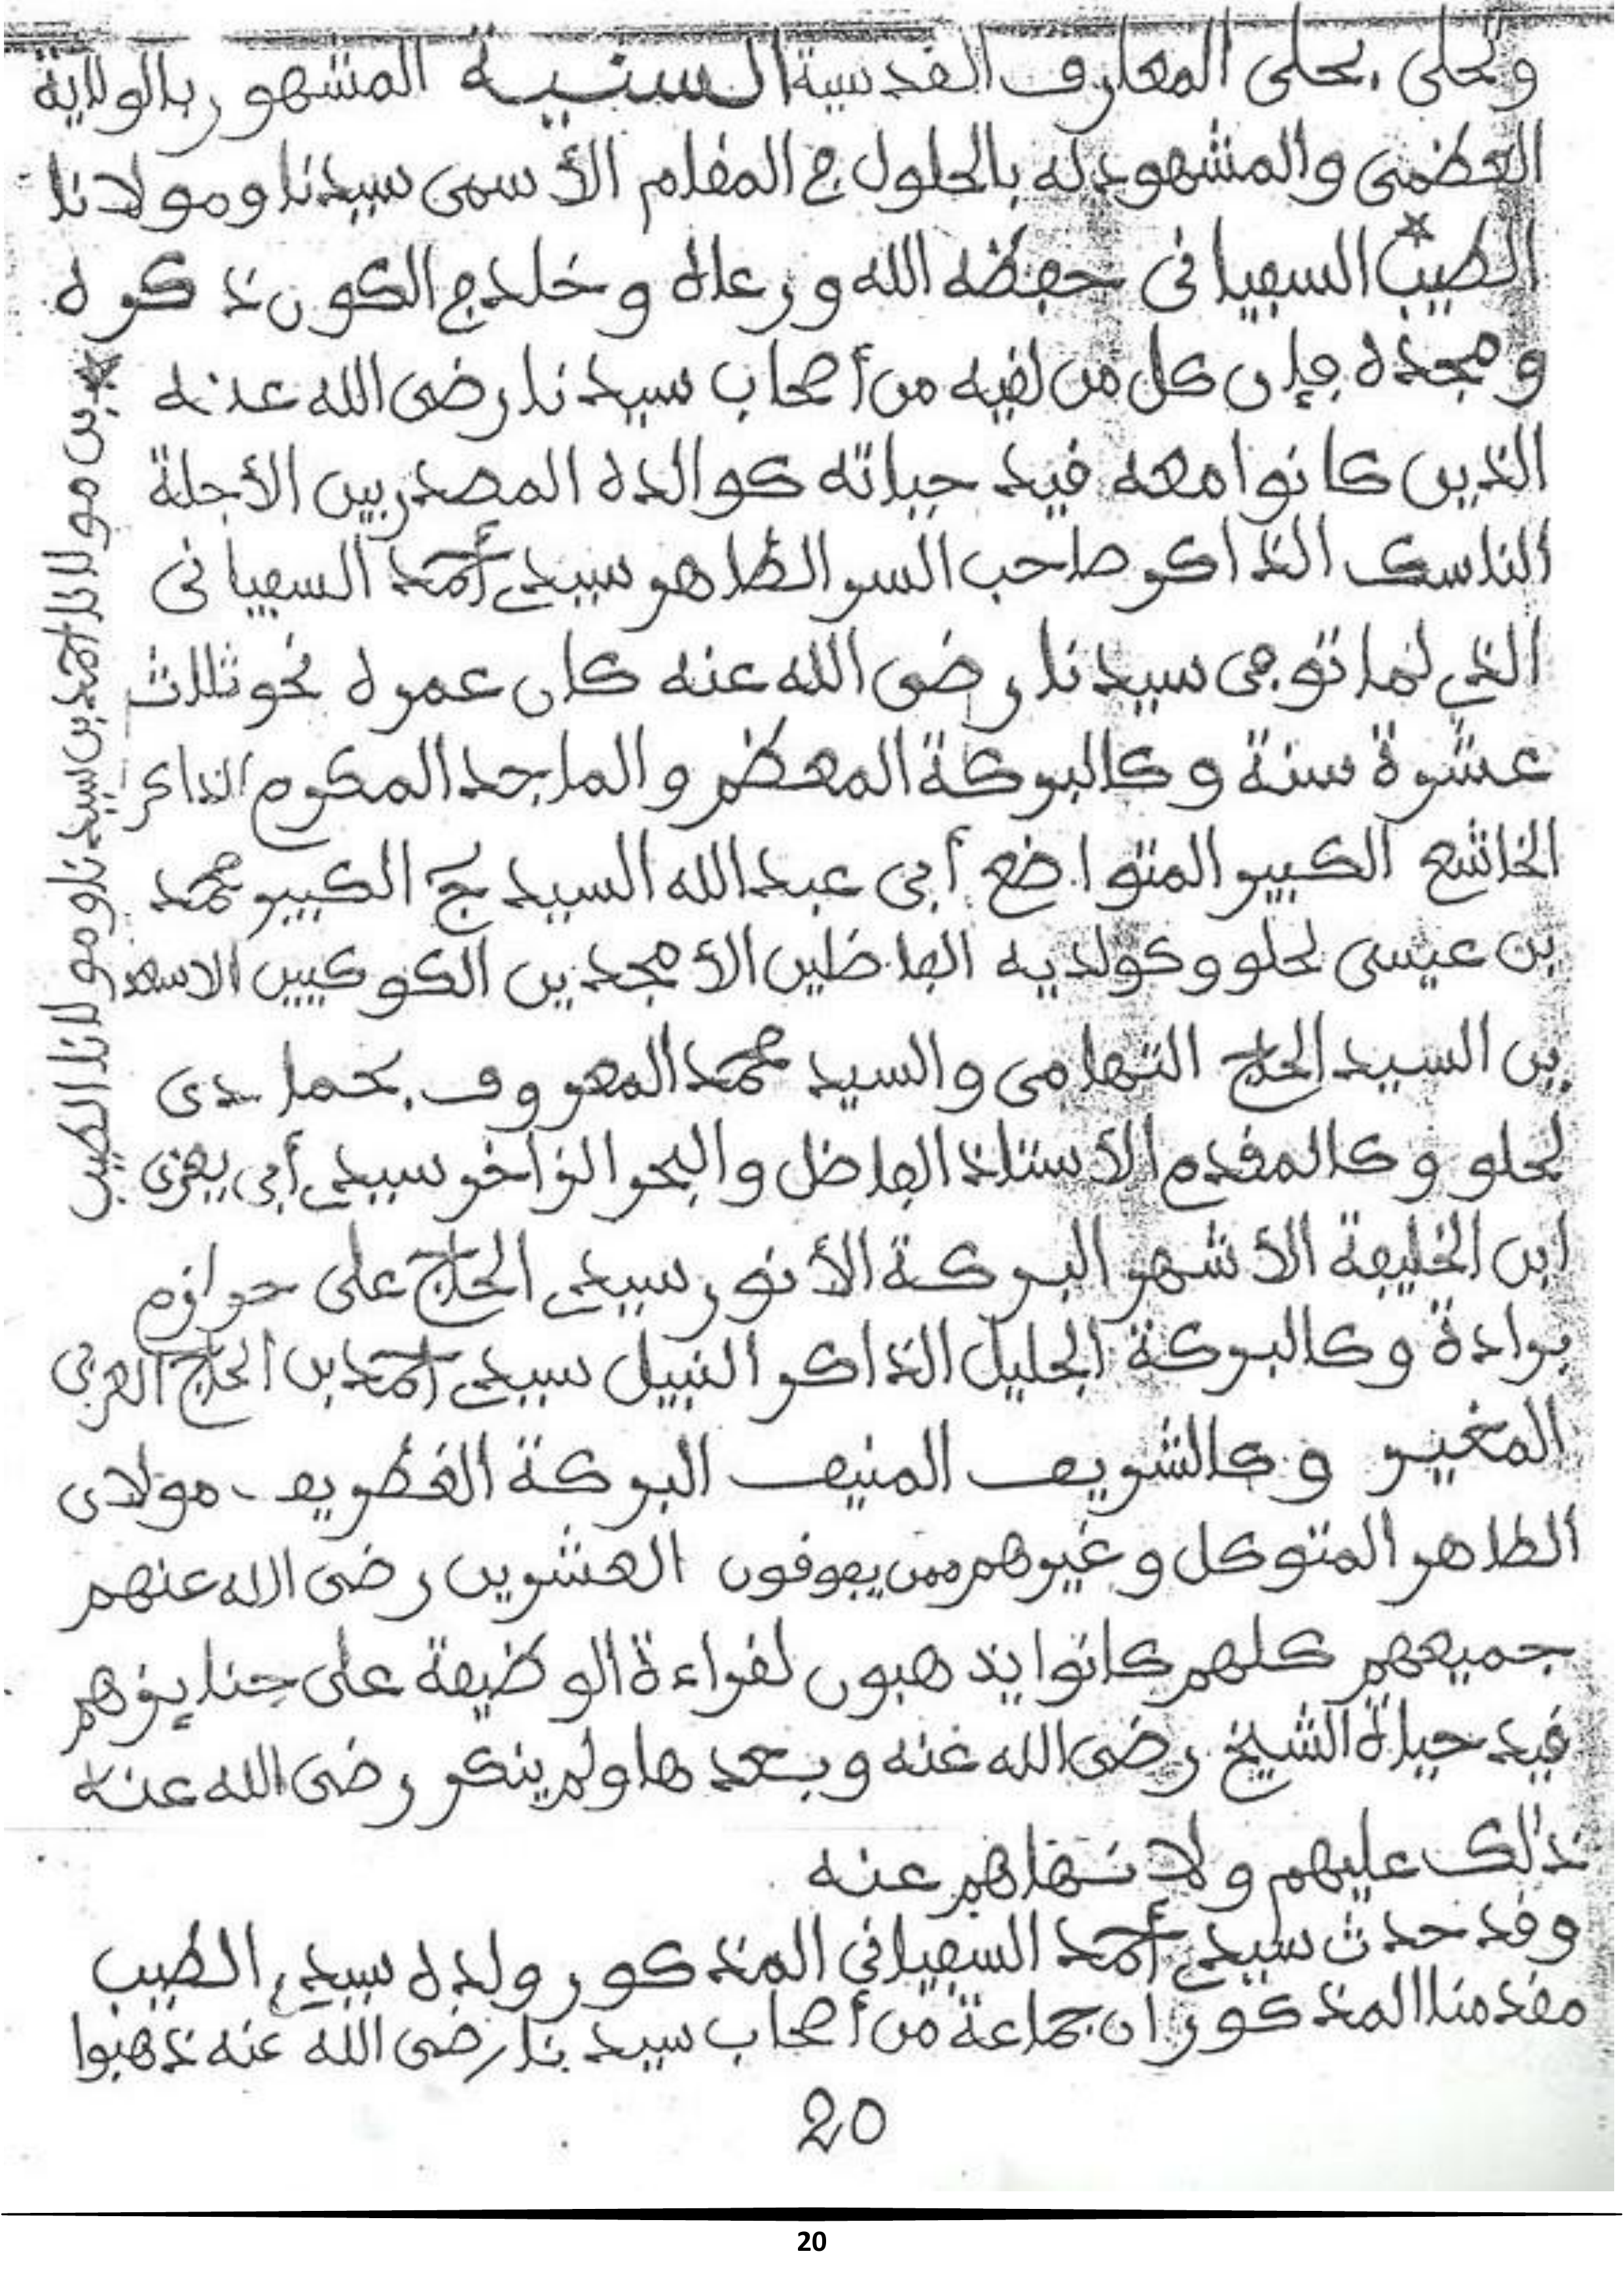 وتحلى بحلى المعارف القدسية السنية المشهور بالولاية
العظمى والمشهود له بالحلول في المقام الأسمى سيدنا ومولانا
الطيب* السفياني حفظه الله ورعاه وخلد في الكون ذكره
ومجده فإن كل من لقيه من أصحاب سيدنا رضى الله عنه
الذين كانوا معه قيد حياته كوالده المصدر بين الأجلة
الناسك الذاكر صاحب السر الظاهر سيدي أحمد السفياني
الذي لما توفي سيدنا رضى الله عنه كان عمره نحو ثلاث
عشرة سنة وكالبركة المعظم والماجد المكرم الذاكر
الخاشع الكبير المتواضع أبي عبد الله السيد ج الكبير محمد
بن عيسى لحلو وكولديه الفاضلين الأمجدين الكوكبين الاسعد
ين السيد الحاج التهامي والسيد محمد المعروف بحمادي
لحلو وكالمقدم الأستاذ الفاضل والبحر الزاخر سيدي أبي يعزى
ابن الخليفة الأشهر البركة الأنور سيدي الحاج على حرازم
برادة وكالبركة الجليل الذاكر النبيل سيدي أحمد بن الحاج العربي
المغير وكالشريف المنيف البركة الغطريف مولاي
الطاهر المتوكل وغيرهم ممن يفوقون العشرين رضى الله عنهم
جميعهم كلهم كانوا يذهبون لقراءة الوظيفة على جنايزهم
قيد حياة الشيخ رضى الله عنه وبعدها ولم ينكر رضى الله عنه
ذلك عليهم ولا نهاهم عنه
وقد حدث سيدي أحمد السفياني المذكور ولده سيدي الطيب
مقدمنا المذكور ان جماعة من أصحاب سيدنا رضى الله عنه ذهبوا
* بن مولانا احمد بن سيدنا ومولانا الطيب
20
20